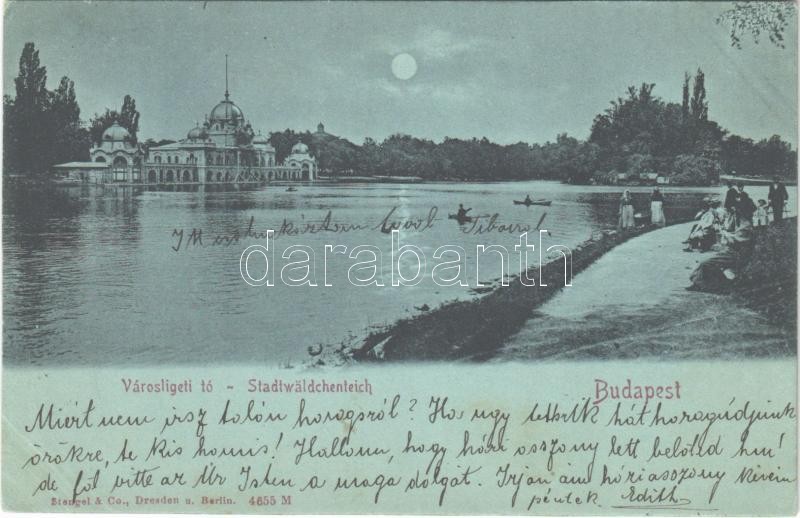 darabanth
Városligeti tó - Stadtwäldchenteich
Budapest
Miért nem irsz talán haragszol? Ha ugy tetszik hát haragudjunk
örökre, te kis hamis! Hallom, hogy házi asszony lett belőled hm!
de föl vitte az Úr Isten a maga dolgát. Irjon ám háziasszony kérem
péntek. Edith
Stengel & Co., Dresden u. Berlin. 4655 M